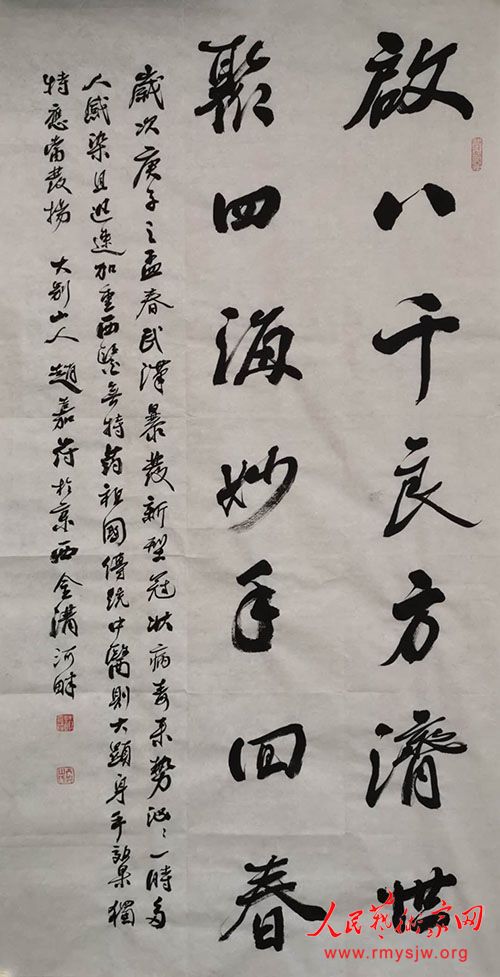 啟八千良方濟世
聚四海妙手回春
歲次庚子之孟春武漢暴發新型冠狀病毒來勢汹汹一時多
人感染且迅速加重西醫無特药祖國傳統中醫則大顯身手效果獨
特應當發揚 大别山人趙嘉 於京西金溝河畔
人民藝術家网
www.rmysjw.org